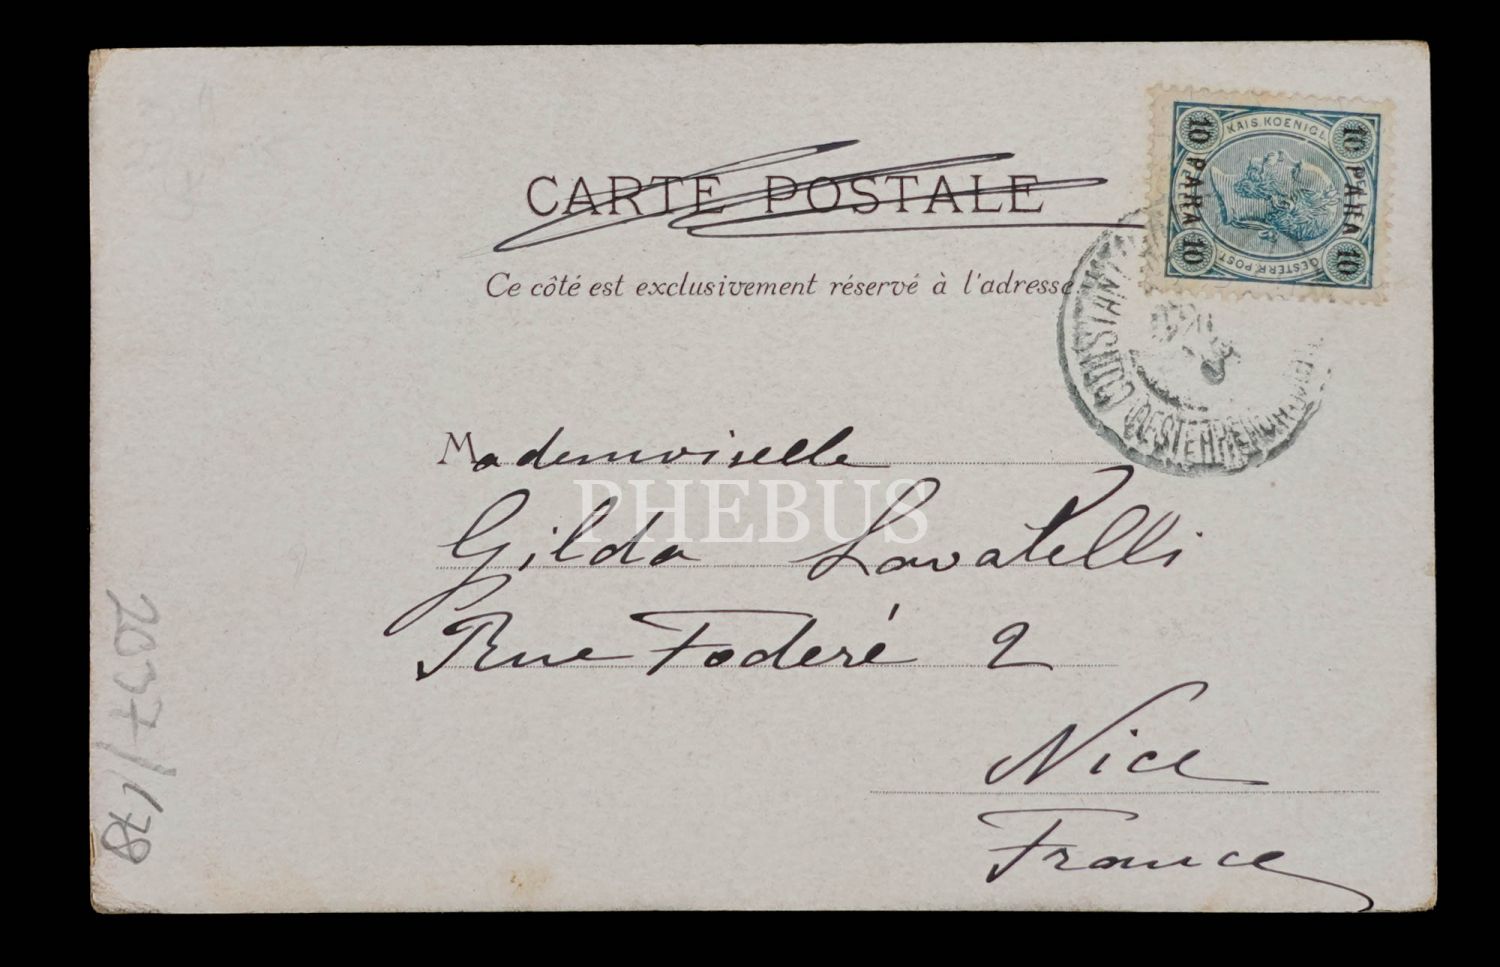 CARTE POSTALE
Ce côté est exclusivement réservé à l'adresse
KAIS. KOENIGL.
OESTERR. POST
10 PARA 10
10 PARA 10
Mademoiselle
PHEBUS
Gilda Lavatelli
Rue Foderé 2
Nice
France
2037/178